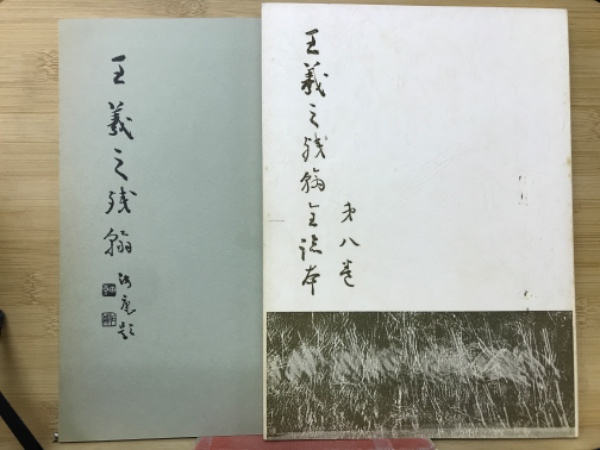 王羲之残翰全訳本
第八巻
王羲之残翰
題